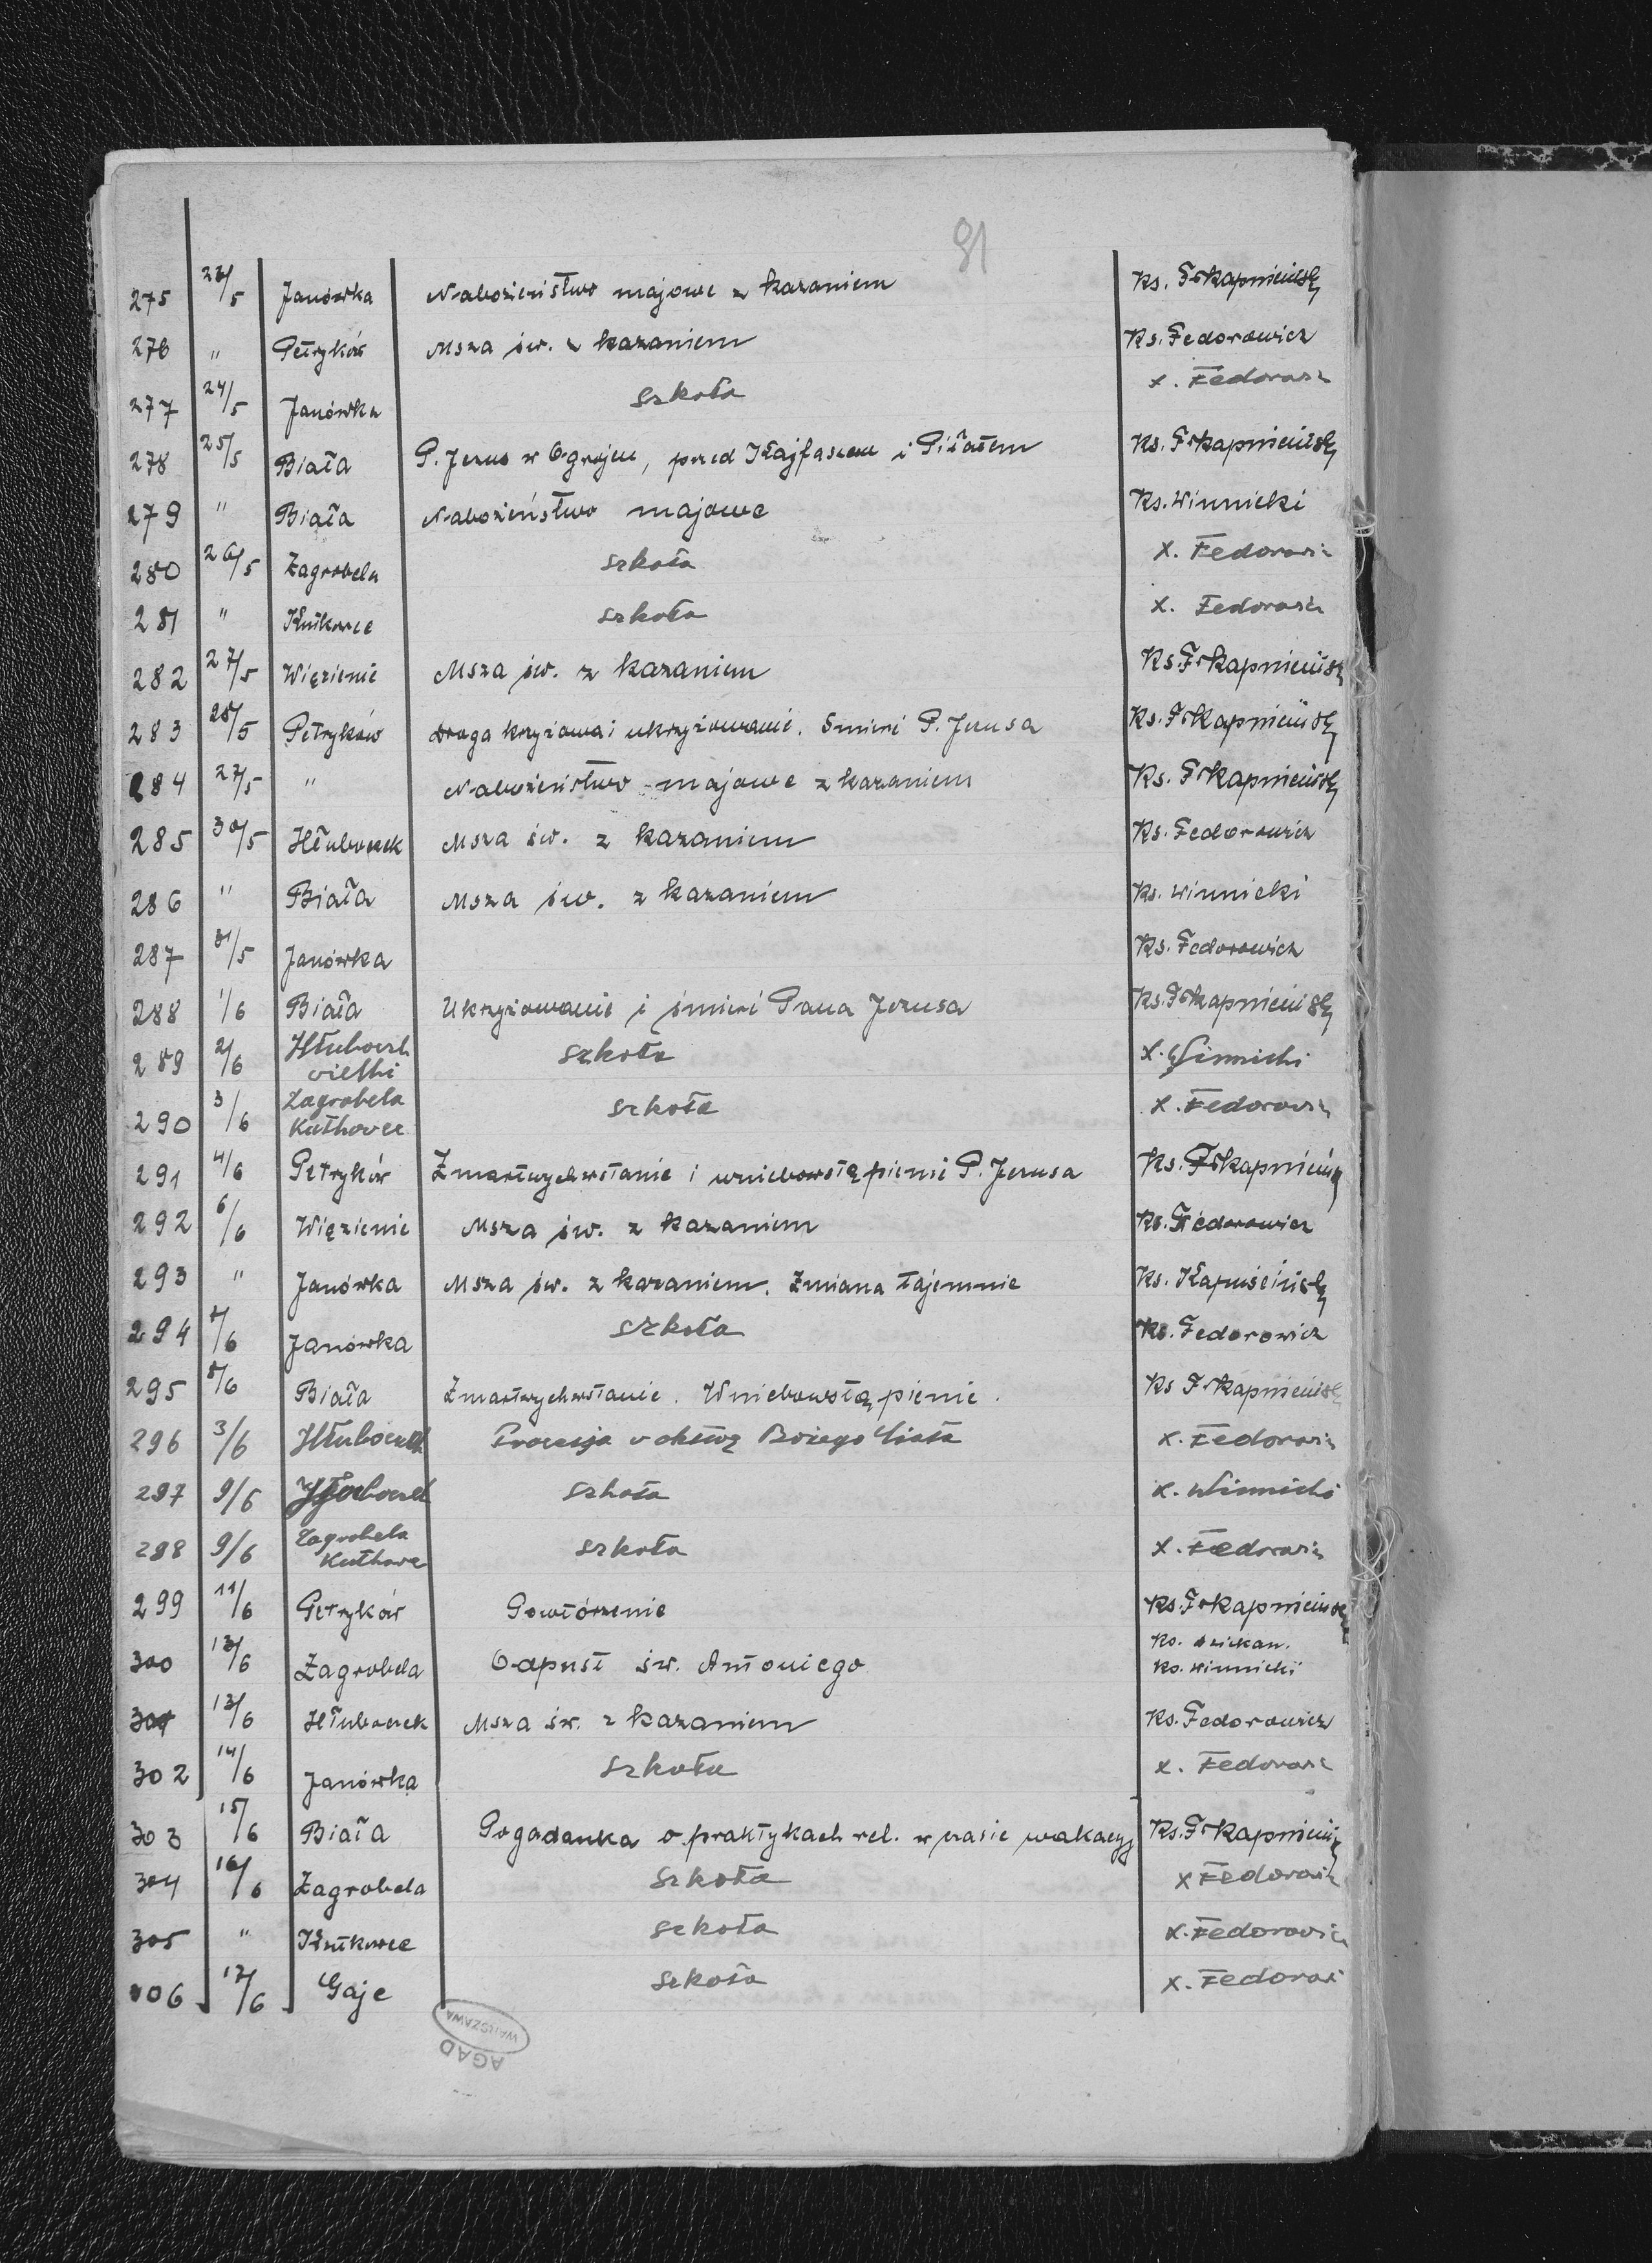 91
275 23/5 Janówka Nabożeństwo majowe z kazaniem Ks. Fr Kapnicińsk
276 " Petryków Msza św. z kazaniem Ks. Fedorowicz
277 24/5 Janówka szkoła x. Fedorowicz
278 25/5 Biała P. Jezus w Ogrojcu, przed Kajfaszem i Piłatem Ks. Fr Kapnicińsk
279 " Biała Nabożeństwo majowe Ks. Winnicki
280 26/5 Zagrobela szkoła x. Fedorowicz
281 " Kutkowce szkoła x. Fedorowicz
282 27/5 Więzienie Msza św. z kazaniem Ks. Fr Kapnicińsk
283 28/5 Petryków Droga krzyżowa i ukrzyżowanie. Śmierć P. Jezusa Ks. Fr Kapnicińsk
284 27/5 " Nabożeństwo majowe z kazaniem Ks. Fr Kapnicińsk
285 30/5 Hłuboczek Msza św. z kazaniem Ks. Fedorowicz
286 " Biała Msza św. z kazaniem Ks. Winnicki
287 31/5 Janówka Ks. Fedorowicz
288 1/6 Biała Ukrzyżowanie i śmierć Pana Jezusa Ks. Fr Kapnicińsk
289 2/6 Hłuboczek wielki szkoła x. Winnicki
290 3/6 Zagrobela Kutkowce szkoła x. Fedorowicz
291 4/6 Petryków Zmartwychwstanie i wniebowstąpienie P. Jezusa Ks. Fr Kapnicińsk
292 6/6 Więzienie Msza św. z kazaniem Ks. Fedorowicz
293 " Janówka Msza św. z kazaniem. Zmiana tajemnic Ks. Kapuścińsk
294 7/6 Janówka szkoła Ks. Fedorowicz
295 8/6 Biała Zmartwychwstanie. Wniebowstąpienie. Ks Fr Kapnicińsk
296 3/6 Hłuboczek Procesja w oktawę Bożego Ciała x. Fedorowicz
297 9/6 Hłuboczek szkoła x. Winnicki
298 9/6 Zagrobela Kutkowce szkoła x. Fedorowicz
299 11/6 Petryków Powtórzenie Ks. Fr Kapnicińsk
300 13/6 Zagrobela Odpust św. Antoniego Ks. dziekan. Ks. Winnicki
301 13/6 Hłuboczek Msza św. z kazaniem Ks. Fedorowicz
302 14/6 Janówka szkoła x. Fedorowicz
303 15/6 Biała Pogadanka o praktykach rel. w czasie wakacyj Ks. Fr Kapnicińsk
304 16/6 Zagrobela szkoła x Fedorowicz
305 " Kutkowce szkoła x. Fedorowicz
306 17/6 Gaje szkoła x. Fedorowicz
AGAD
WARSZAWA